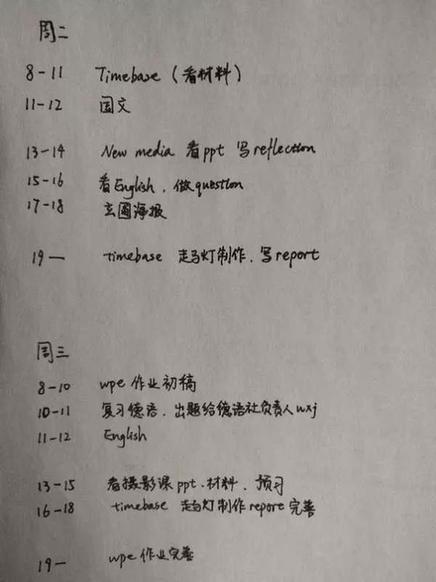 周二
8-11 Timebase（看材料）
11-12 国文
13-14 New media 看ppt 写reflection
15-16 看English，做question
17-18 玄圃海报
19— timebase 走马灯制作，写report
周三
8-10 wpe 作业初稿
10-11 复习德语，出题给德语社负责人wxj
11-12 English
13-15 看摄影课ppt.材料，预习
16-18 timebase 走马灯制作report完善
19— wpe 作业完善